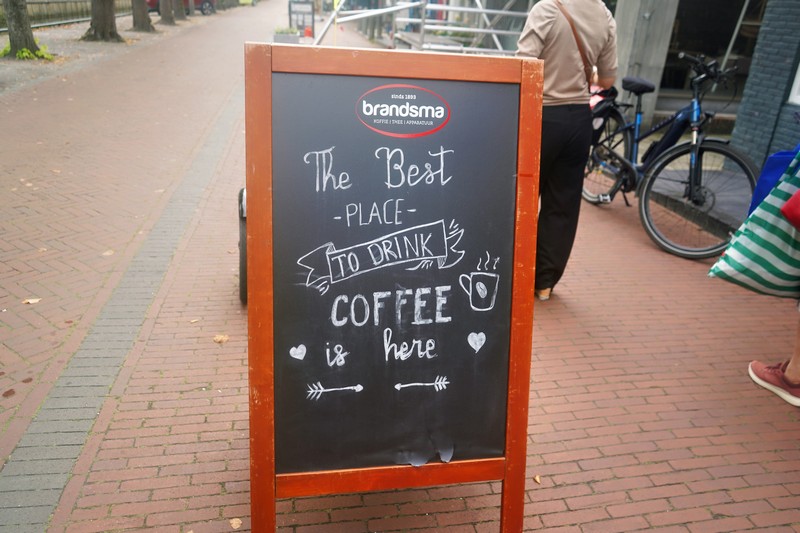 sinds 1899
brandsma
KOFFIE | THEE | APPARATUUR
The Best
-PLACE-
TO DRINK
COFFEE
is here